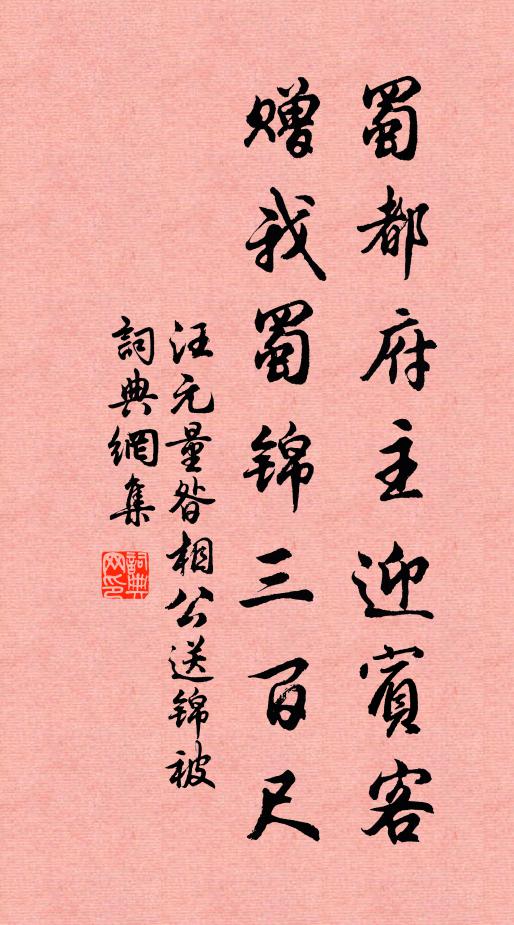 蜀都府主迎賓客
贈我蜀锦三百尺
汪元量昝相公送锦被
詞典網集
詞典網印